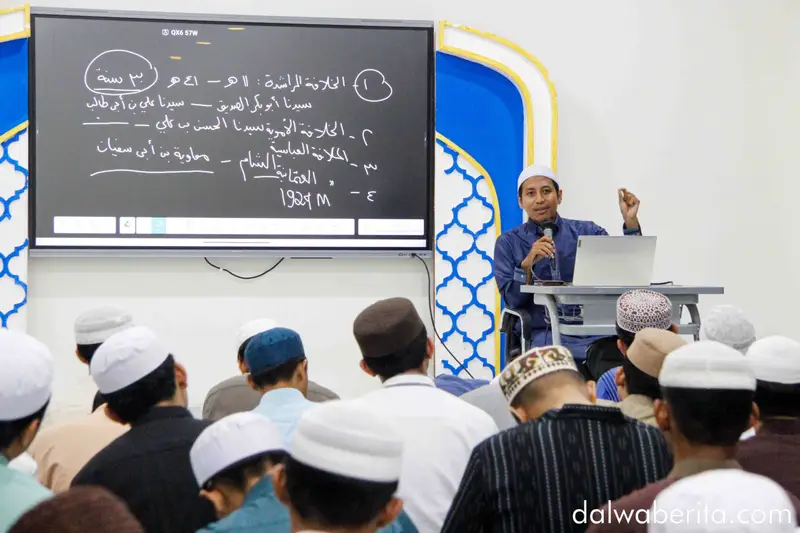 QX6 57W
١- الخلافة الراشدة : ١١ هـ – ٤١ هـ ٣٠ سنة
سيدنا أبو بكر الصديق – سيدنا علي بن أبي طالب
٢- الخلافة الأموية سيدنا الحسن بن علي –
٣- الخلافة العباسية الشام – معاوية بن أبي سفيان
٤- " العثمانية
1924 M
dalwaberita.com